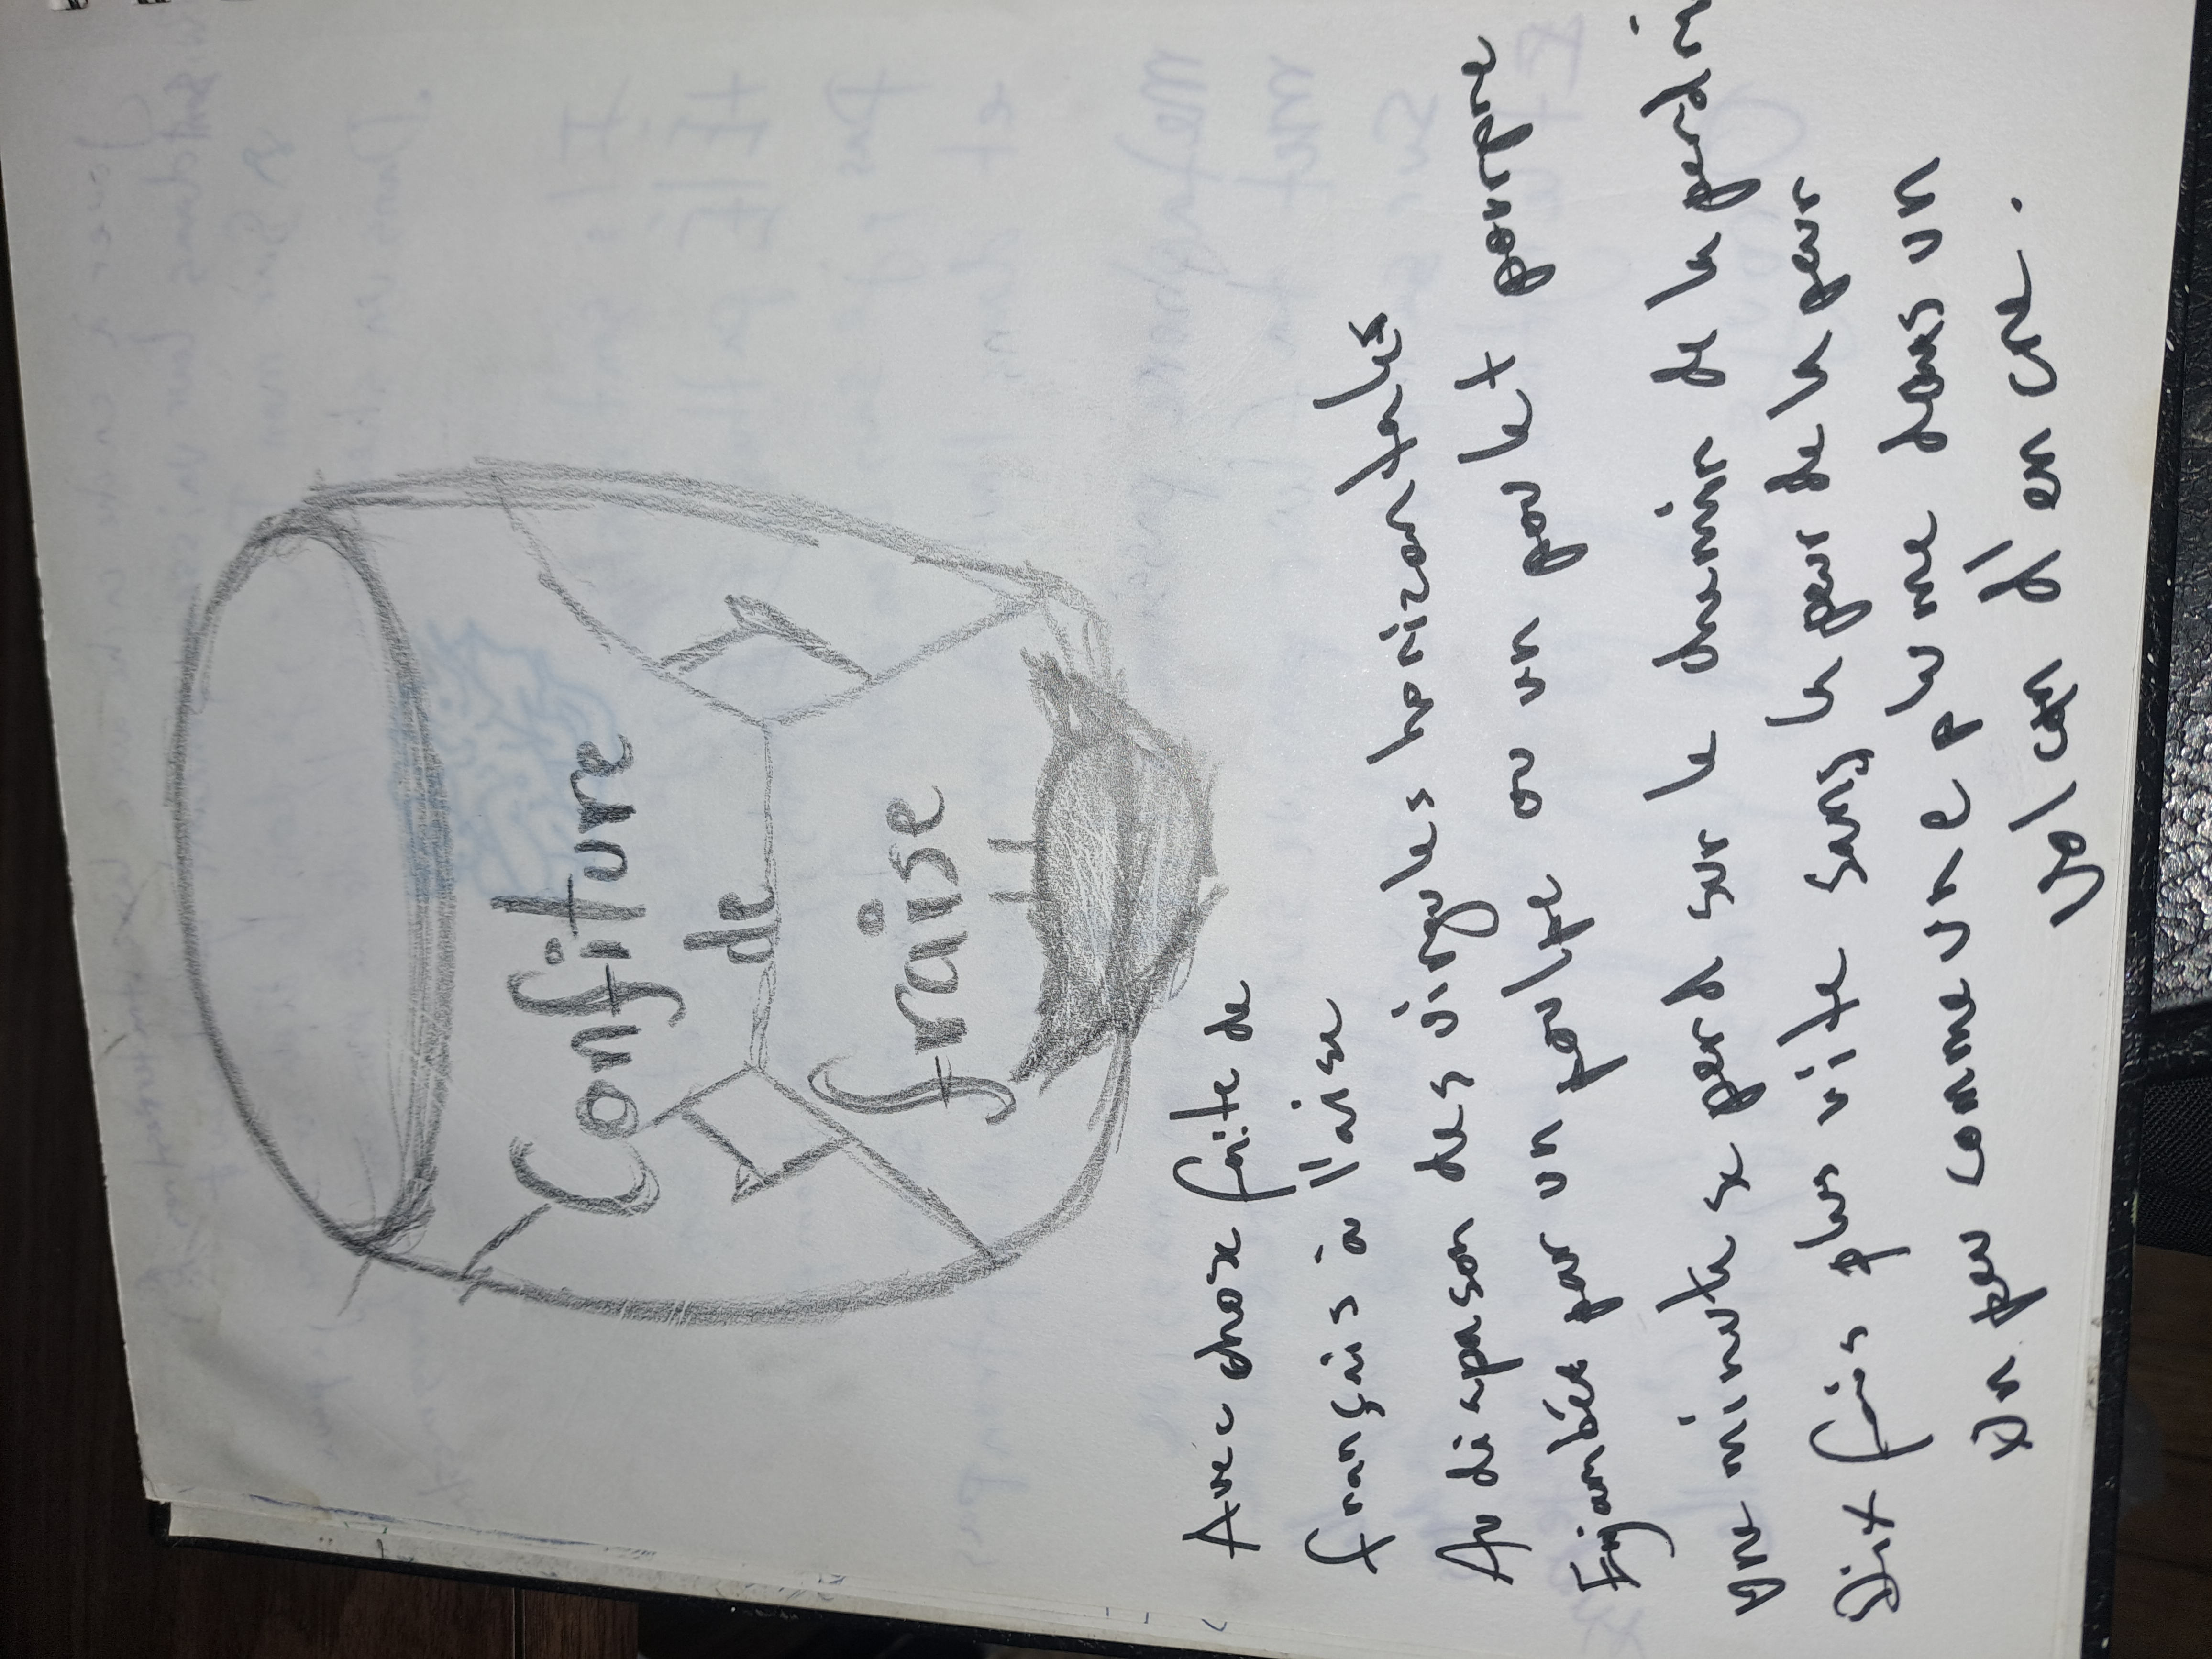 Confiture
de
fraise
Avec chose faite de
français à l'aise
Au diapason des virgules horizontales
Enjambée par un poulpe ou un poulet pourpre
Une minute se perd sur le chemin de la perdri
Dix fois plus vite sans la peur de la peur
Un peu comme une plume dans un
volcan d'encre.